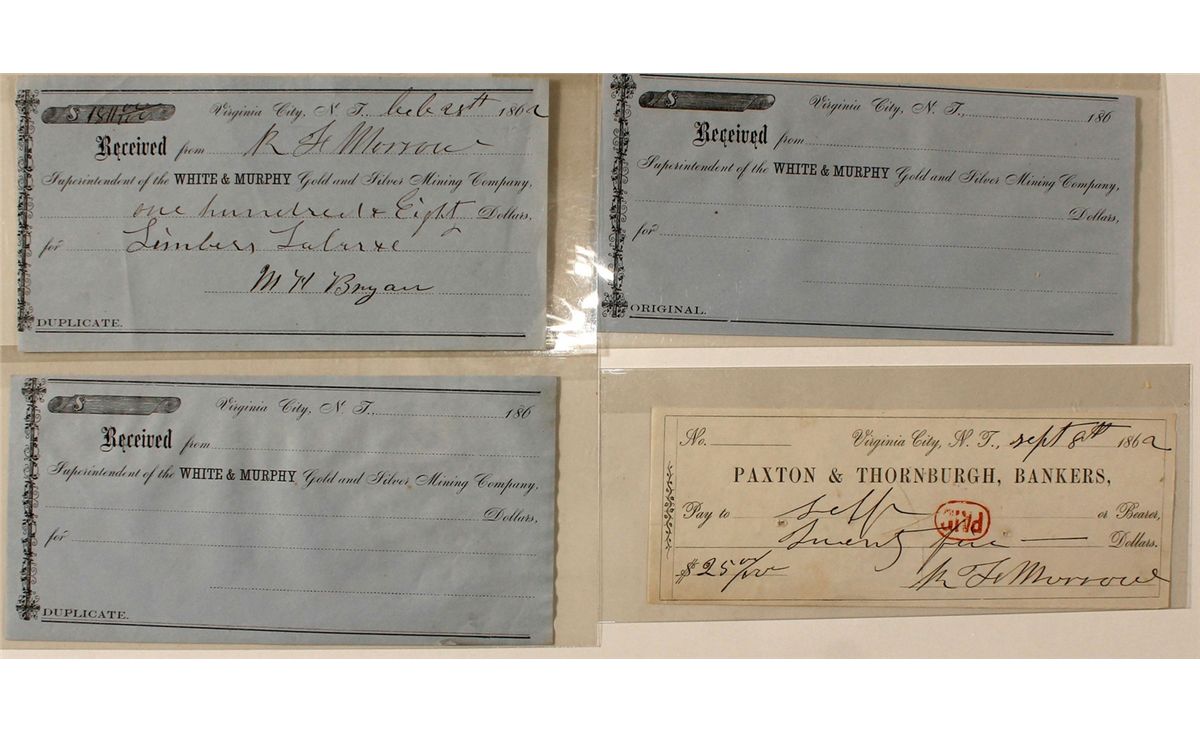 Virginia City, N. T. Feb 28th 1862
Received from R F Morrow
Superintendent of the WHITE & MURPHY Gold and Silver Mining Company,
one hundred & Eight Dollars,
for Timbers Labor &c
M H Bryan
DUPLICATE.
$
Virginia City, N. T., 186
Received from
Superintendent of the WHITE & MURPHY Gold and Silver Mining Company,
Dollars,
for
ORIGINAL.
$
Virginia City, N. T. 186
Received from
Superintendent of the WHITE & MURPHY Gold and Silver Mining Company,
Dollars,
for
DUPLICATE.
No. Virginia City, N. T., Sept 8th 1862
PAXTON & THORNBURGH, BANKERS,
Pay to Self or Bearer,
PAID
Twenty five Dollars.
$25 00/100 R F Morrow